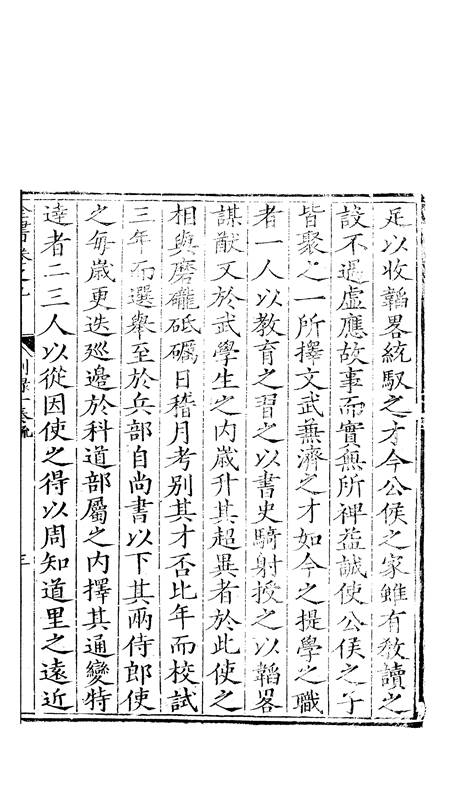 足以收韜畧統馭之才今公侯之家雖有教讀之
設不過虛應故事而實無所裨益誠使公侯之子
皆聚之一所擇文武兼濟之才如今之提學之職
者一人以教育之習之以書史騎射授之以韜畧
謀猷又於武學生之內歲升其超異者於此使之
相與磨礲砥礪日稽月考別其才否比年而校試
三年而選舉至於兵部自尚書以下其兩侍郎使
之每歲更迭廵邊於科道部屬之內擇其通變特
達者二三人以從因使之得以周知道里之遠近
全書卷之九
別錄一奏疏
三